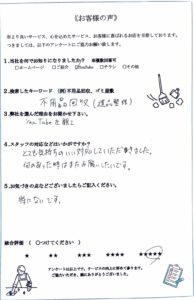 《お客様の声》
常により良いサービス、心を込めたサービス、お客様に喜ばれるお店を目指しております。
つきましては、以下のアンケートにご協力お願い致します。
1.当社を何でお知りになりましたか？ ※複数回答可
□ホームページ □ご紹介 ☑YouTube □チラシ □その他
2.検索したキーワード (例)不用品回収、ゴミ屋敷
不用品回収(遺品整理)
3.弊社を選んだ理由をお聞かせ下さい。
YouTubeを観て
4.スタッフの対応などはいかがですか？
とても気持ちのいい対応していただきました。
何かあった時はまたお願いしたいです。
5.お気づきの点などございましたらご記入ください。
特にないです。
総合評価 (○つけてください)
★ ★★ ★★★ ★★★★ ★★★★★
アンケートは以上です。サービスの向上に努めて参ります。
ご協力いただき、誠にありがとうございました。